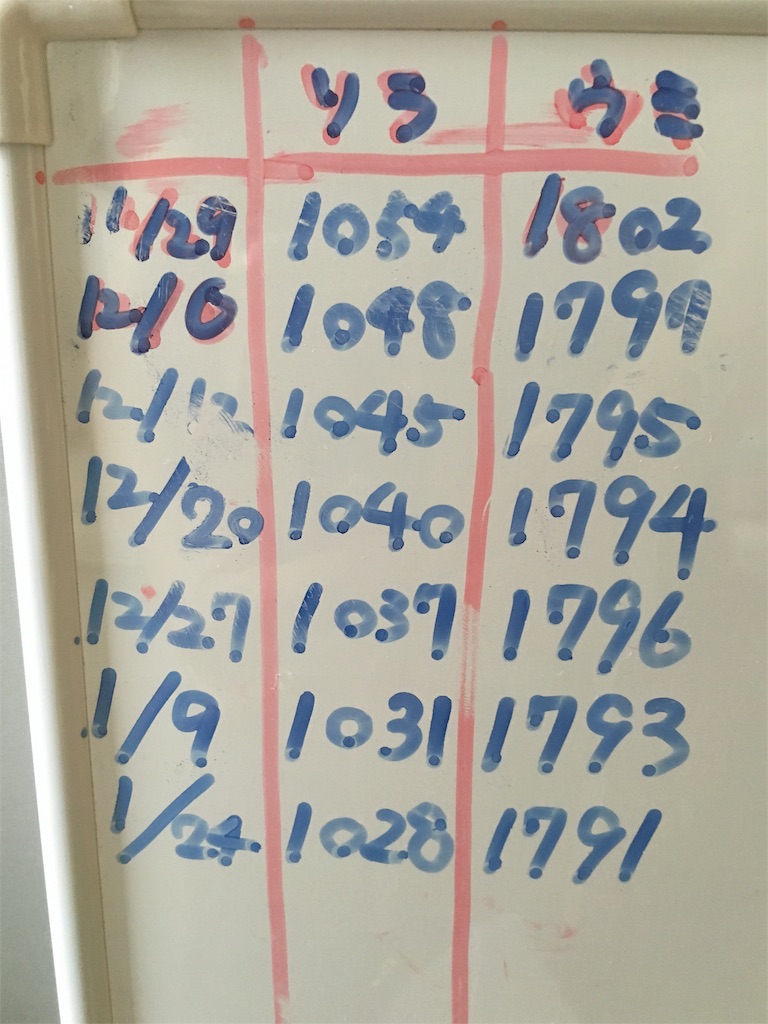 ソラ ウミ
11/29 1054 1802
12/6 1048 1799
12/12 1045 1795
12/20 1040 1794
12/27 1037 1796
1/9 1031 1793
1/24 1028 1791